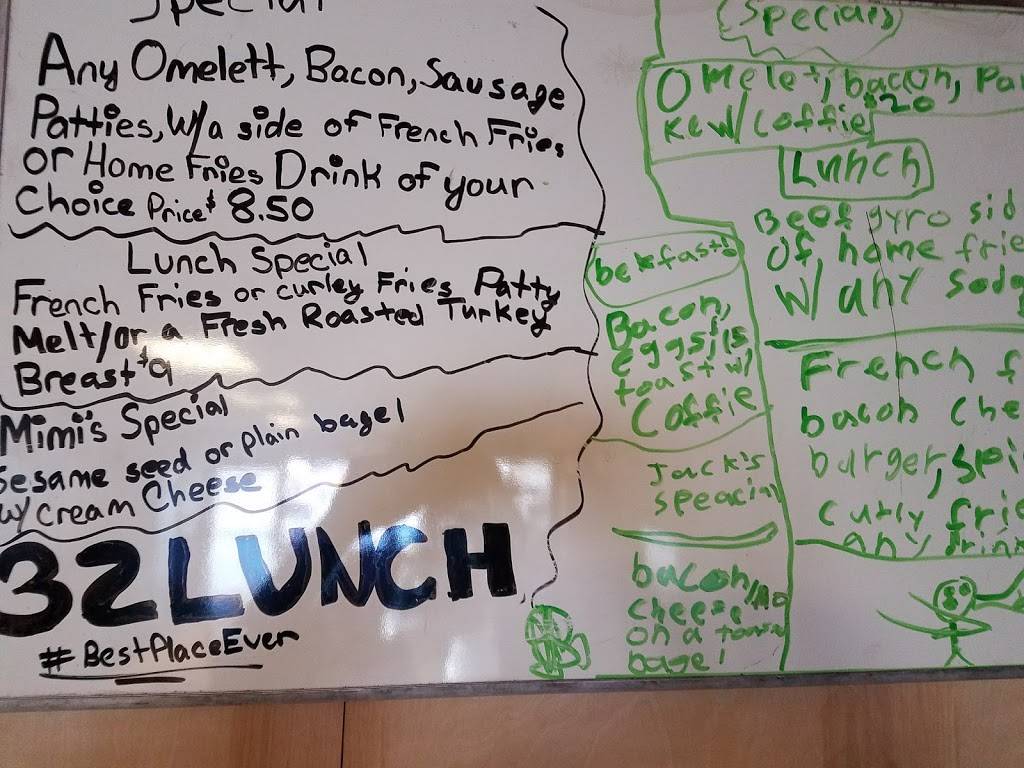 Special
Any Omelett, Bacon, Sausage
Patties, W/a side of French Fries
or Home Fries Drink of your
Choice Price $ 8.50
Lunch Special
French Fries or curley Fries Patty
Melt/or a Fresh Roasted Turkey
Breast $9
Mimi's Special
Sesame seed or plain bagel
w/ cream Cheese
32 LUNCH
#BestPlaceEver
Specials
Omelet, bacon, Pan
ke w/ coffie $20
Lunch
Beef gyro sid
of home frie
w/ any soda
bekfast
Bacon,
eggs,
toast w/
Coffie
Jack's
speacial
bacon
cheese
on a
bagel
French f
bacon che
burger,
curly frie
any drink